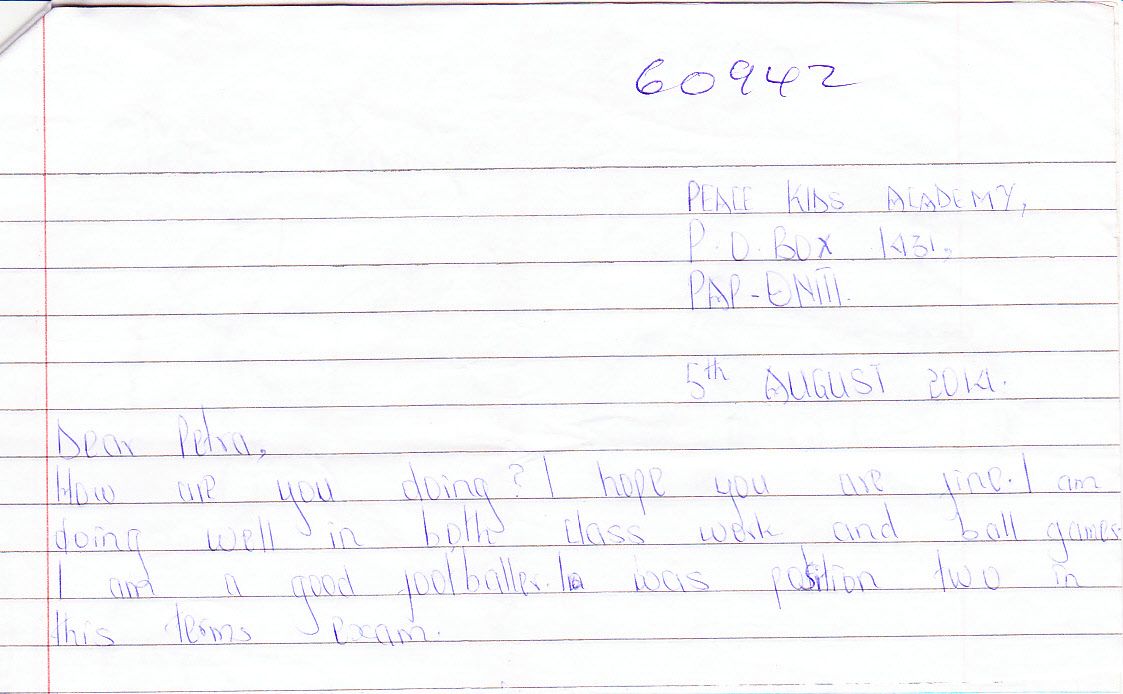 60942
PEACE KIDS ACADEMY,
P.O. BOX 1431,
PAP-ONDITI.
5th AUGUST 2014.
Dear Petra,
How are you doing? I hope you are fine. I am
doing well in both class work and ball games.
I am a good footballer. I was position two in
this terms exam.